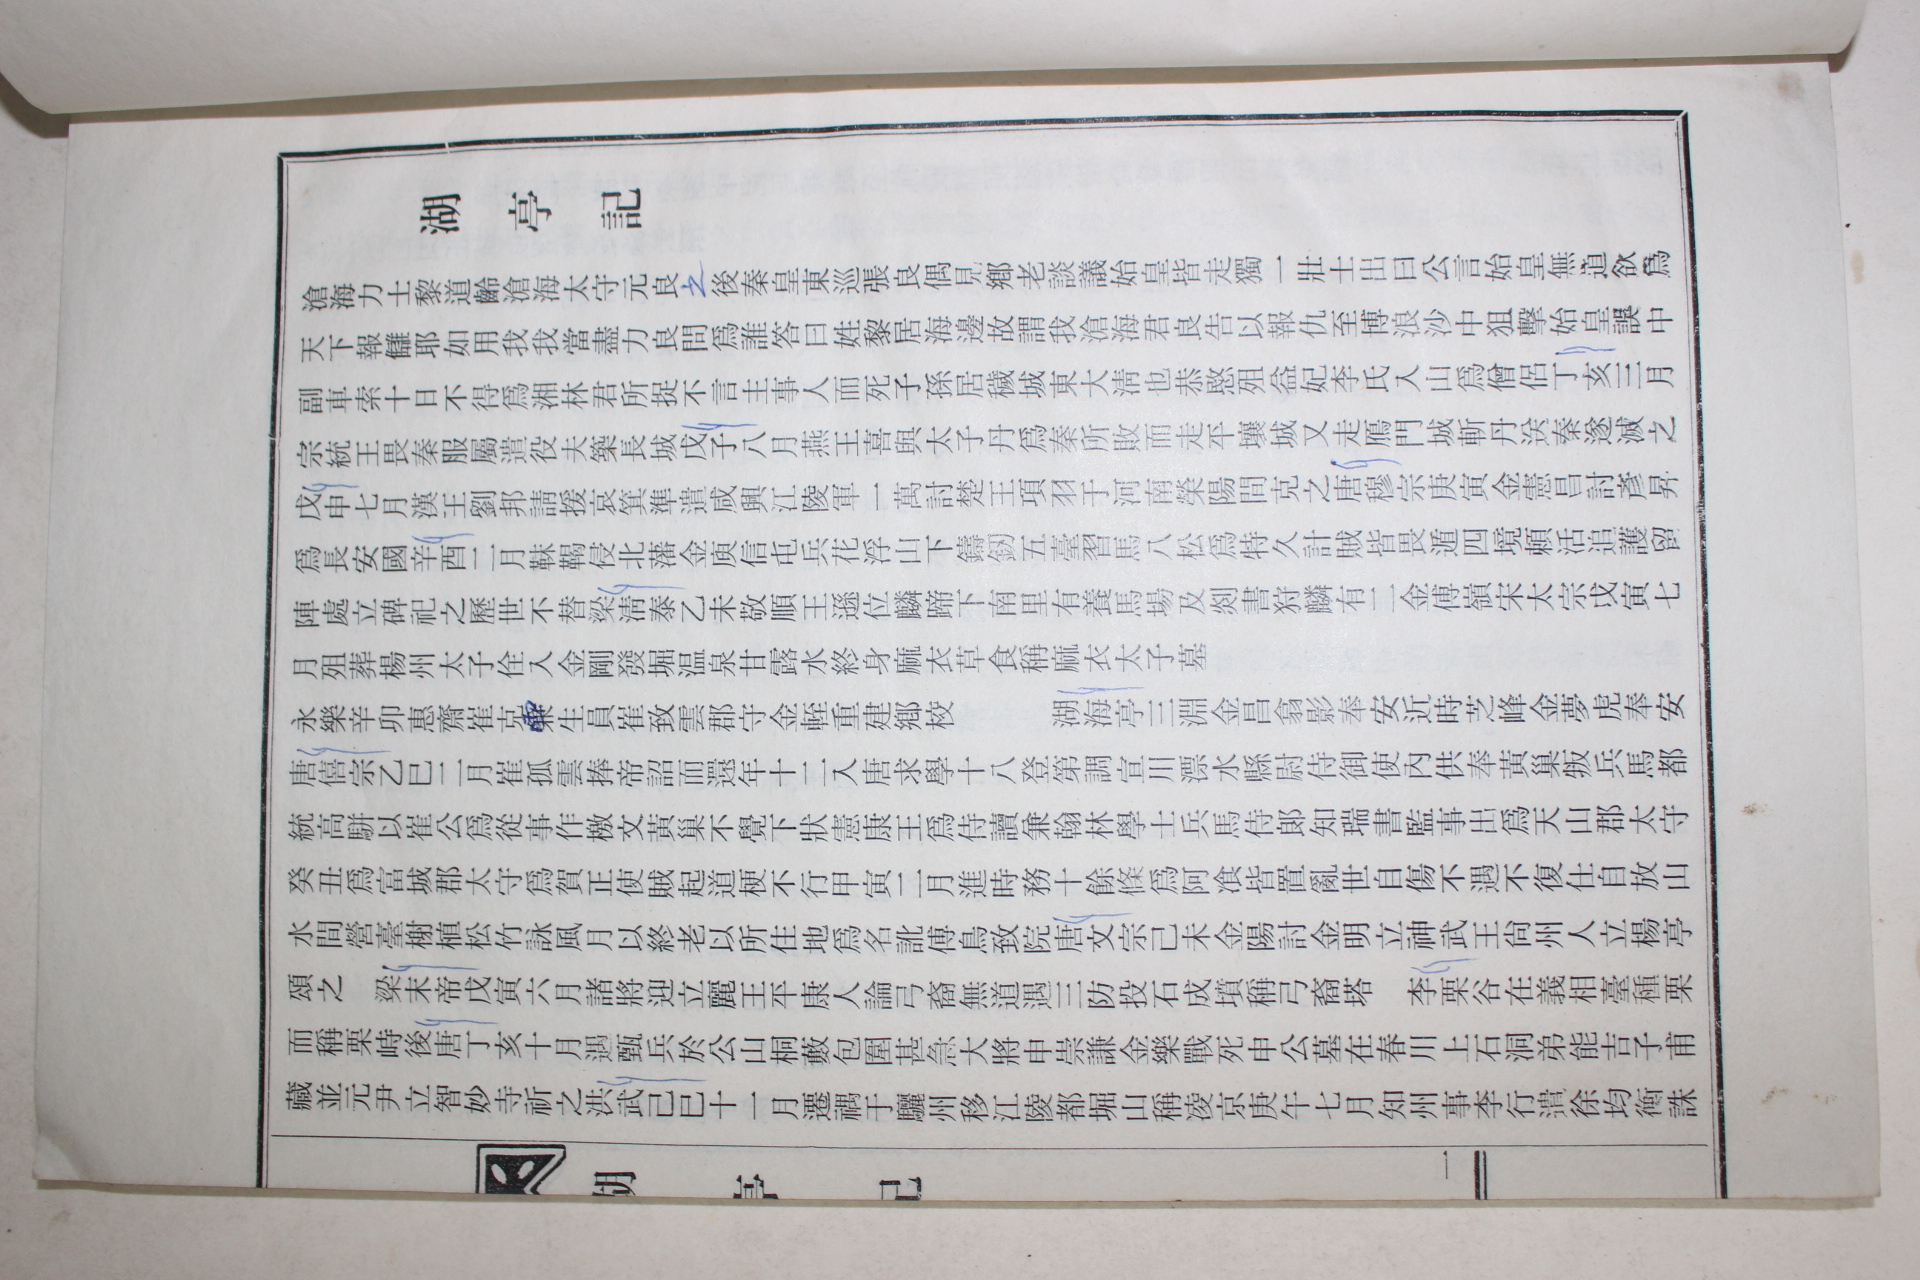 湖亭記
滄海力士黎道齡滄海太守元良之後秦皇東巡張良偶見鄉老談議始皇皆走獨一壯士出曰公言始皇無道欲爲
天下報讎耶如用我我當盡力良問爲誰答曰姓黎居海邊故謂我滄海君良告以報仇至博浪沙中狙擊始皇誤中
副車索十日不得爲湘林君所捉不言主事人而死子孫居穢城東大淸也恭愍殂益妃李氏入山爲僧侶丁亥三月
宗統王畏秦服屬遣役夫築長城戊子八月燕王喜與太子丹爲秦所敗而走平壤城又走鴈門城斬丹送秦遂滅之
戊申七月漢王劉邦請援哀箕準遣咸興江陵軍一萬討楚王項羽于河南滎陽間克之唐穆宗庚寅金憲昌討彥昇
爲長安國辛酉二月靺鞨侵北藩金庾信屯兵花浮山下鑄釰五臺習馬八松爲特久計賊皆畏遁四境賴活追護留
陣處立碑祀之歷世不替梁淸泰乙未敬順王遜位麟蹄下南里有養馬場及剡書狩麟有二金傅嶺宋太宗戊寅七
月殂葬楊州太子佺入金剛發堀温泉甘露水終身麻衣草食稱麻衣太子墓
永樂辛卯惠齋崔克粟生員崔致雲郡守金輊重建鄉校 湖海亭三淵金昌翕影奉安近時芝峰金夢虎奉安
唐僖宗乙巳二月崔孤雲捧帝詔而還年十二入唐求學十八登第調宣川漂水縣尉侍御使內供奉黃巢叛兵馬都
統高駢以崔公爲從事作檄文黃巢不覺下狀憲康王爲侍讀兼翰林學士兵馬侍郞知瑞書監事出爲天山郡太守
癸丑爲富城郡太守爲賀正使賊起道梗不行甲寅二月進時務十餘條爲阿飡皆置亂世自傷不遇不復仕自放山
水間營臺榭植松竹詠風月以終老以所住地爲名訛傅鳥致院唐文宗己未金陽討金明立神武王尙州人立楊亭
頌之 梁末帝戊寅六月諸將迎立麗王平康人論弓裔無道遇三防投石成墳稱弓裔塔 李栗谷在義相臺種栗
而稱栗峙後唐丁亥十月遇甄兵於公山桐藪包圍甚急大將申崇謙金樂戰死申公墓在春川上石洞弟能吉子甫
藏並元尹立智妙寺祈之洪武己巳十一月遷禑于驪州移江陵都堀山稱淩京庚午七月知州事李行遣徐均衡誅
湖亭記 一